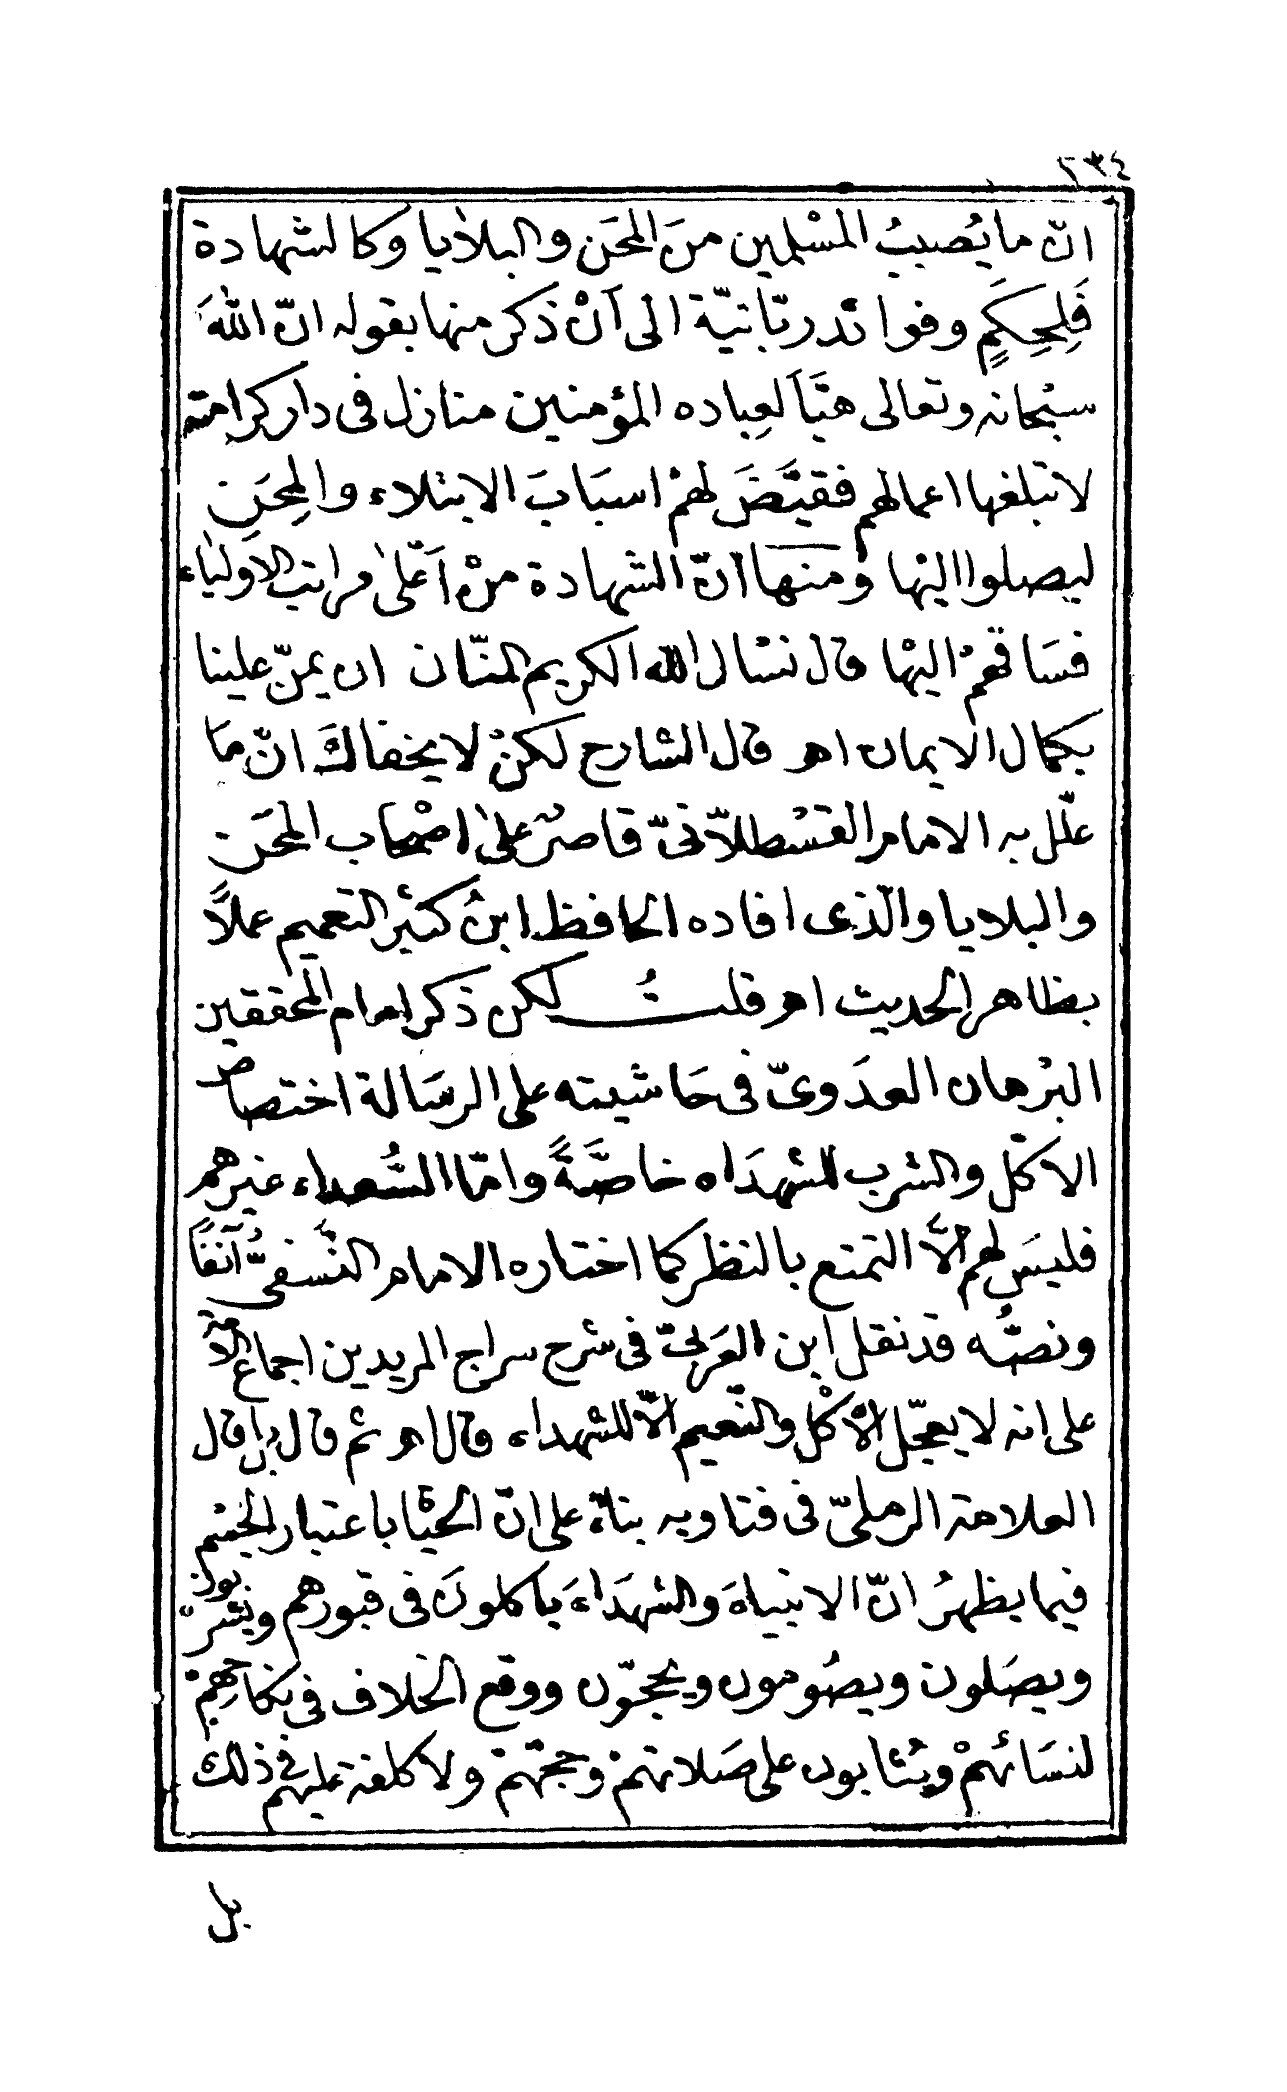 ٢٣٤
انّ ما يُصيبُ المسْلمين منَ المحَن والبلاٰيا وكالشهادة
فَلِحِكَمٍ وفوائد ربّانيّة الى اَنْ ذكر منها بقوله انّ اللهَ
سبْحانه وتعالى هيَّاَ لعِباده المؤمنين منازل فى دار كرامته
لا تبلغها اعمالهم فقيَّضَ لهمْ اسبَابَ الابتلاء والمِحَن
ليصلوا اليْها ومنها انّ الشهادة منْ اَعْلىٰ مراتب الاَوليَاء
فسَاقهمْ اليْها قال نسْال الله الكريم المنّان ان يمنّ علينا
بكمال الايمان اهـ قال الشارح لكنْ لا يخفاكَ انّ مَا
علّل به الامام القسْطلاّنىّ قاصرٌ علىٰ اصْحاب المحَن
والبلايا والّذى افاده الحافظ ابنُ كثير التعميم عملاً
بظاهر الحديث اهـ قلتُ لكن ذكر امام المحققين
البرْهان العدَوىّ فى حَاشيته على الرسَالة اختصاص
الاكل والشرب للشهدَاء خاصَّةً وامّا السُّعداء غيرهم
فليسَ لهم الاَّ التمتع بالنظر كما اختاره الامام النّسَفىُّ آنفًا
ونصُّه قد نقل ابن العَربىّ فى شرح سراج المريدين اجماع الامّة
على انه لا يعجّل الاكْل والنّعيم الاّ للشهداء قال اهـ ثم قال بل قال
العلامة الرملىّ فى فتاويه بناءً على انّ الحيْا باعتبار الجسْم
فيما يظهرُ انّ الانبياءَ والشهدَاءَ ياكلونَ فى قبورهم ويشربون
ويصَلون ويصُومون ويحجّون ووقع الخلاف فى نكاحِهِمْ
لنسَائهمْ ويُثابون على صَلاتهمْ وحجّهمْ ولا كلفة عليهم فى ذلك
بل